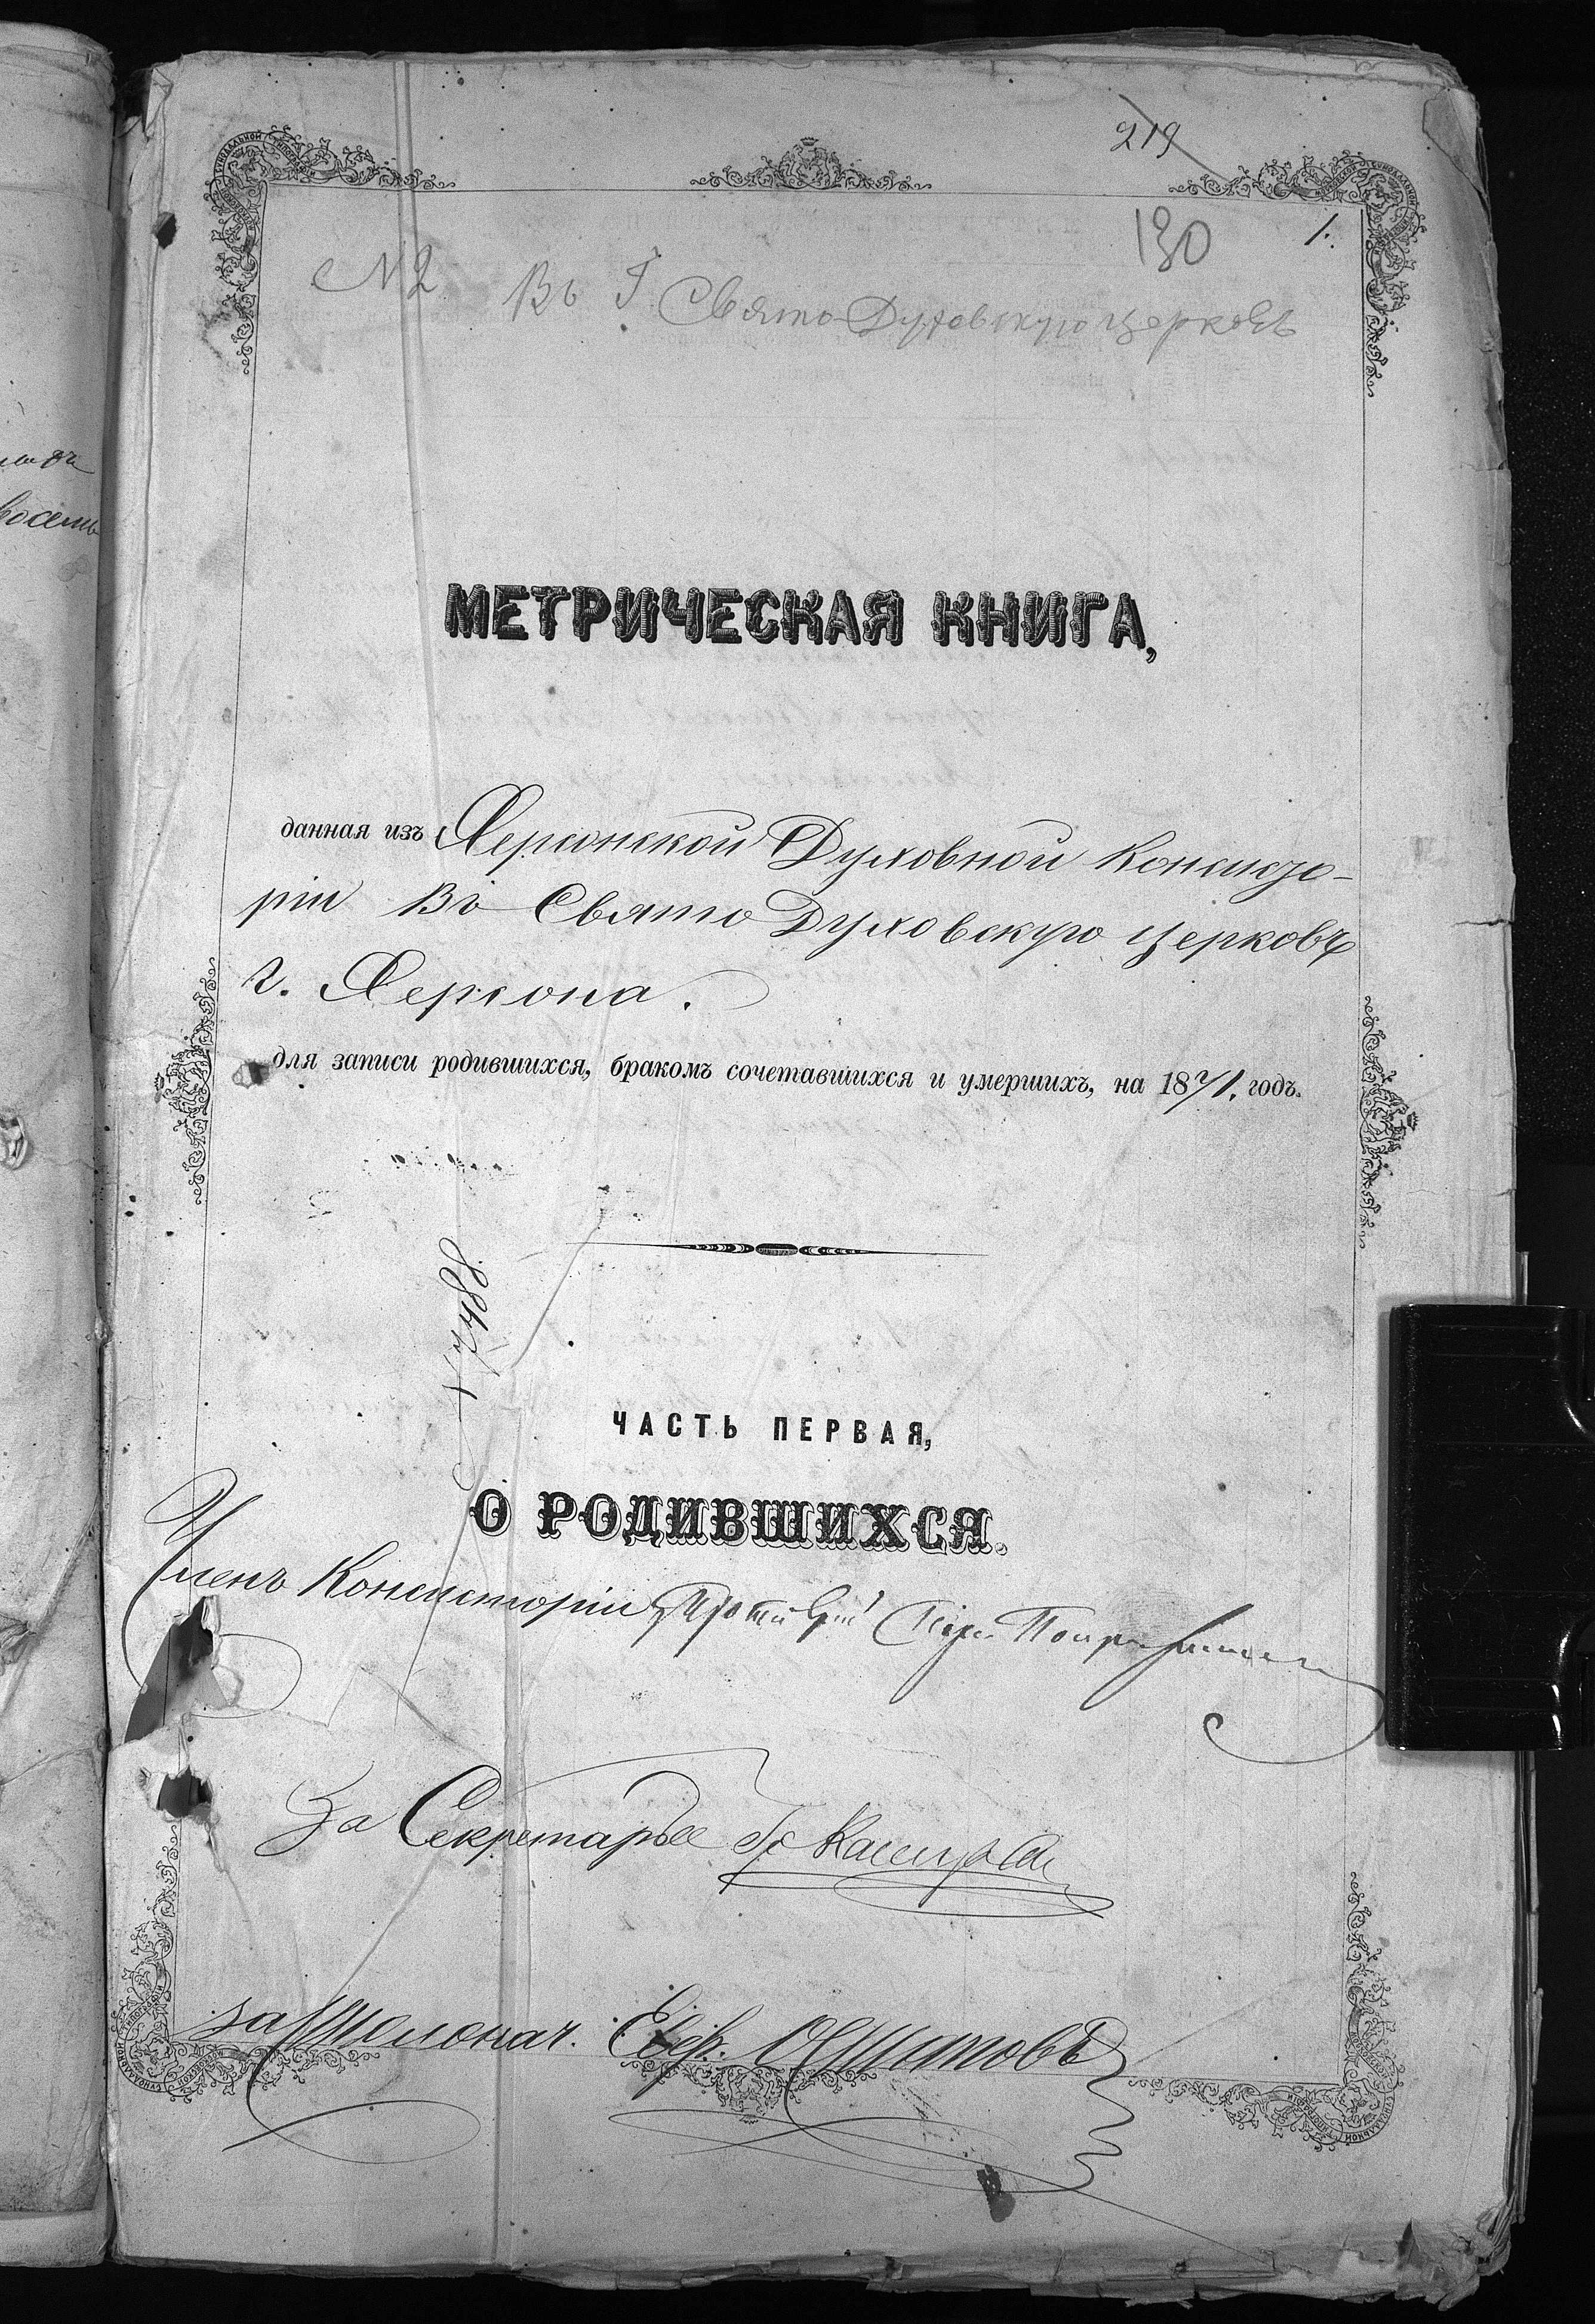 219
130
1.
№ 2 Въ Г. Свято Духовскую церковь
МЕТРИЧЕСКАЯ КНИГА,
данная изъ Херсонской Духовной Консисто-
ріи въ Свято Духовскую церковь
г. Херсона.
для записи родившихся, бракомъ сочетавшихся и умершихъ, на 1871. годъ.
№ 7488
ЧАСТЬ ПЕРВАЯ,
О РОДИВШИХСЯ.
Членъ Консисторіи, Протоіерей
За Секретаря
за Столонач.